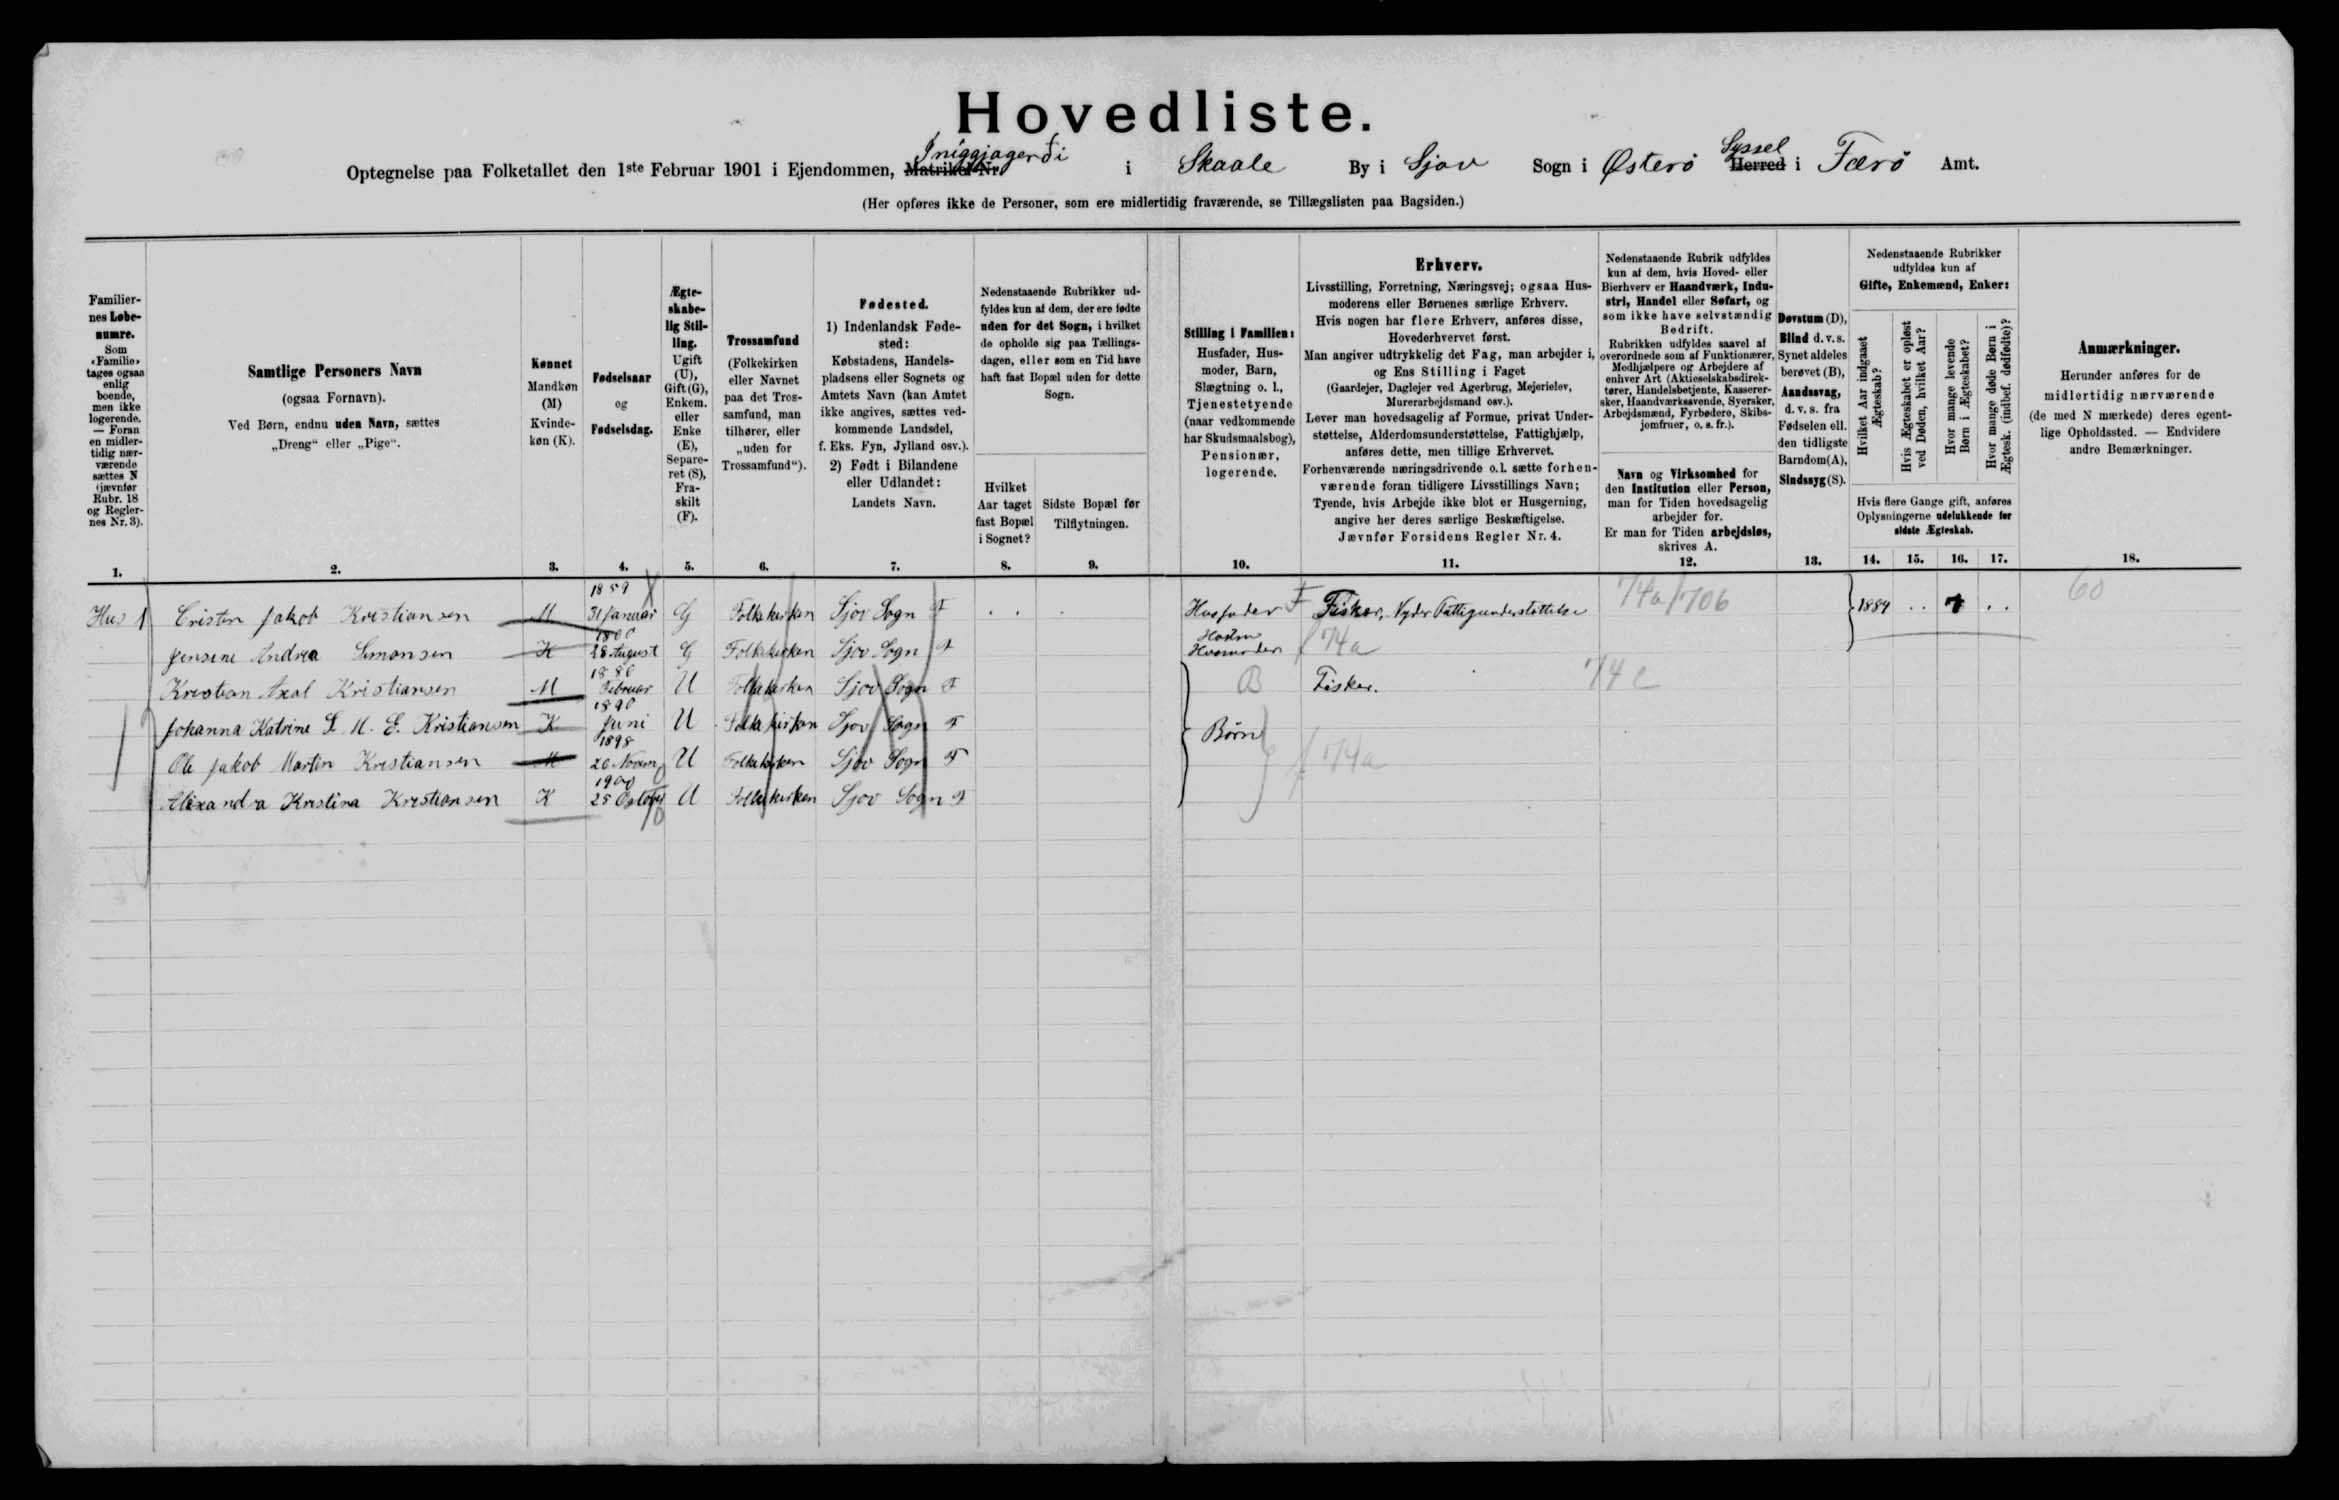 Hovedliste.
Optegnelse paa Folketallet den 1ste Februar 1901 i Ejendommen, Matrikel-Nr. Iniggjagerði i Skaale By i Sjov Sogn i Østerö Herred Syssel i Færö Amt.
(Her opføres ikke de Personer, som ere midlertidig fraværende, se Tillægslisten paa Bagsiden.)
Familier-
nes Løbe-
numre.
Som
«Familie»
tages ogsaa
enlig
boende,
men ikke
logerende.
— Foran
en midler-
tidig nær-
værende
sættes N
(jævnfør
Rubr. 18
og Regler-
nes Nr. 3).
1.
Samtlige Personers Navn
(ogsaa Fornavn).
Ved Børn, endnu uden Navn, sættes
„Dreng“ eller „Pige“.
2.
Kønnet
Mandkøn
(M)
Kvinde-
køn (K).
3.
Fødselsaar
og
Fødselsdag.
4.
Ægte-
skabe-
lig Stil-
ling.
Ugift
(U),
Gift(G),
Enkem.
eller
Enke
(E),
Separe-
ret (S),
Fra-
skilt
(F).
5.
Trossamfund
(Folkekirken
eller Navnet
paa det Tros-
samfund, man
tilhører, eller
„uden for
Trossamfund“).
6.
Fødested.
1) Indenlandsk Føde-
sted:
Købstadens, Handels-
pladsens eller Sognets og
Amtets Navn (kan Amtet
ikke angives, sættes ved-
kommende Landsdel,
f. Eks. Fyn, Jylland osv.).
2) Født i Bilandene
eller Udlandet:
Landets Navn.
7.
Nedenstaaende Rubrikker ud-
fyldes kun af dem, der ere fødte
uden for det Sogn, i hvilket
de opholde sig paa Tællings-
dagen, eller som en Tid have
haft fast Bopæl uden for dette
Sogn.
Hvilket
Aar taget
fast Bopæl
i Sognet?
8.
Sidste Bopæl før
Tilflytningen.
9.
Stilling i Familien:
Husfader, Hus-
moder, Barn,
Slægtning o. l.,
Tjenestetyende
(naar vedkommende
har Skudsmaalsbog),
Pensionær,
logerende.
10.
Erhverv.
Livsstilling, Forretning, Næringsvej; ogsaa Hus-
moderens eller Børnenes særlige Erhverv.
Hvis nogen har flere Erhverv, anføres disse,
Hovederhvervet først.
Man angiver udtrykkelig det Fag, man arbejder i,
og Ens Stilling i Faget
(Gaardejer, Daglejer ved Agerbrug, Mejerielev,
Murerarbejdsmand osv.).
Lever man hovedsagelig af Formue, privat Under-
støttelse, Alderdomsunderstøttelse, Fattighjælp,
anføres dette, men tillige Erhvervet.
Forhenværende næringsdrivende o.l. sætte forhen-
værende foran tidligere Livsstillings Navn;
Tyende, hvis Arbejde ikke blot er Husgerning,
angive her deres særlige Beskæftigelse.
Jævnfør Forsidens Regler Nr. 4.
11.
Nedenstaaende Rubrik udfyldes
kun af dem, hvis Hoved- eller
Bierhverv er Haandværk, Indu-
stri, Handel eller Søfart, og
som ikke have selvstændig
Bedrift.
Rubrikken udfyldes saavel af
overordnede som af Funktionærer,
Medhjælpere og Arbejdere af
enhver Art (Aktieselskabsdirek-
tører, Handelsbetjente, Kasserer-
sker, Haandværkssvende, Syersker,
Arbejdsmænd, Fyrbødere, Skibs-
jomfruer, o. s. fr.).
Navn og Virksomhed for
den Institution eller Person,
man for Tiden hovedsagelig
arbejder for.
Er man for Tiden arbejdsløs,
skrives A.
12.
Døvstum (D),
Blind d. v. s.
Synet aldeles
berøvet (B),
Aandssvag,
d. v. s. fra
Fødselen ell.
den tidligste
Barndom(A),
Sindssyg (S).
13.
Nedenstaaende Rubrikker
udfyldes kun af
Gifte, Enkemænd, Enker:
Hvilket Aar indgaaet
Ægteskab?
Hvis Ægteskabet er opløst
ved Døden, hvilket Aar?
Hvor mange levende
Børn i Ægteskabet?
Hvor mange døde Børn i
Ægtesk. (indbef. dødfødte)?
Hvis flere Gange gift, anføres
Oplysningerne udelukkende for
sidste Ægteskab.
14. 15. 16. 17.
Anmærkninger.
Herunder anføres for de
midlertidig nærværende
(de med N mærkede) deres egent-
lige Opholdssted. — Endvidere
andre Bemærkninger.
18.
Hus 1 Cristen Jakob Kristiansen M 1859 31 Januar G Folkekirken Sjov Sogn F . . . Husfader F Fisker, Nyder Fattigunderstøttelse 74a/706 1884 . . 7 . . 60
Jensine Andrea Simonsen K 28 August G Folkekirken Sjov Sogn F Hustru Husmoder 74a
Kristian Axal Kristiansen M 1886 Februar U Folkekirken Sjov Sogn F B Fisker. 74c
Johanna Katrine S. M. E. Kristiansen K 1890 Juni U Folkekirken Sjov Sogn F Børn
Ole Jakob Martin Kristiansen M 1898 20 Novem U Folkekirken Sjov Sogn F 74a
Alexandra Kristina Kristiansen K 1900 25 October U Folkekirken Sjov Sogn F